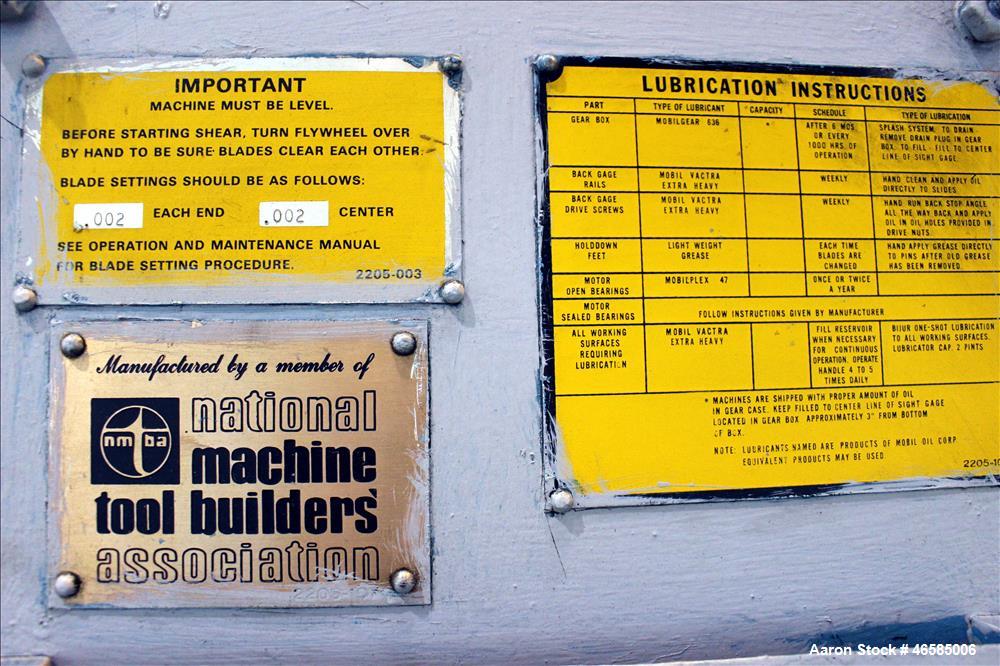 IMPORTANT
MACHINE MUST BE LEVEL.
BEFORE STARTING SHEAR, TURN FLYWHEEL OVER
BY HAND TO BE SURE BLADES CLEAR EACH OTHER.
BLADE SETTINGS SHOULD BE AS FOLLOWS:
.002 EACH END .002 CENTER
SEE OPERATION AND MAINTENANCE MANUAL
FOR BLADE SETTING PROCEDURE.
2205-003
Manufactured by a member of
nmtba
national
machine
tool builders'
association
LUBRICATION INSTRUCTIONS
PART TYPE OF LUBRICANT CAPACITY SCHEDULE TYPE OF LUBRICATION
GEAR BOX MOBILGEAR 636 * AFTER 6 MOS. SPLASH SYSTEM. TO DRAIN -
OR EVERY REMOVE DRAIN PLUG IN GEAR
1000 HRS. OF BOX. TO FILL - FILL TO CENTER
OPERATION LINE OF SIGHT GAGE.
BACK GAGE MOBIL VACTRA WEEKLY HAND CLEAN AND APPLY OIL
RAILS EXTRA HEAVY DIRECTLY TO SLIDES.
BACK GAGE MOBIL VACTRA WEEKLY HAND RUN BACK STOP ANGLE
DRIVE SCREWS EXTRA HEAVY ALL THE WAY BACK AND APPLY
OIL IN OIL HOLES PROVIDED IN
DRIVE NUTS.
HOLDDOWN LIGHT WEIGHT EACH TIME HAND APPLY GREASE DIRECTLY
FEET GREASE BLADES ARE TO PINS AFTER OLD GREASE
CHANGED HAS BEEN REMOVED.
MOTOR MOBILPLEX 47 ONCE OR TWICE
OPEN BEARINGS A YEAR
MOTOR
SEALED BEARINGS FOLLOW INSTRUCTIONS GIVEN BY MANUFACTURER
ALL WORKING MOBIL VACTRA FILL RESERVOIR BIJUR ONE-SHOT LUBRICATION
SURFACES EXTRA HEAVY WHEN NECESSARY TO ALL WORKING SURFACES.
REQUIRING FOR CONTINUOUS LUBRICATOR CAP. 2 PINTS
LUBRICATION OPERATION. OPERATE
HANDLE 4 TO 5
TIMES DAILY
* MACHINES ARE SHIPPED WITH PROPER AMOUNT OF OIL
IN GEAR CASE. KEEP FILLED TO CENTER LINE OF SIGHT GAGE
LOCATED IN GEAR BOX APPROXIMATELY 3" FROM BOTTOM
OF BOX.
NOTE: LUBRICANTS NAMED ARE PRODUCTS OF MOBIL OIL CORP.
EQUIVALENT PRODUCTS MAY BE USED.
Aaron Stock # 46585006